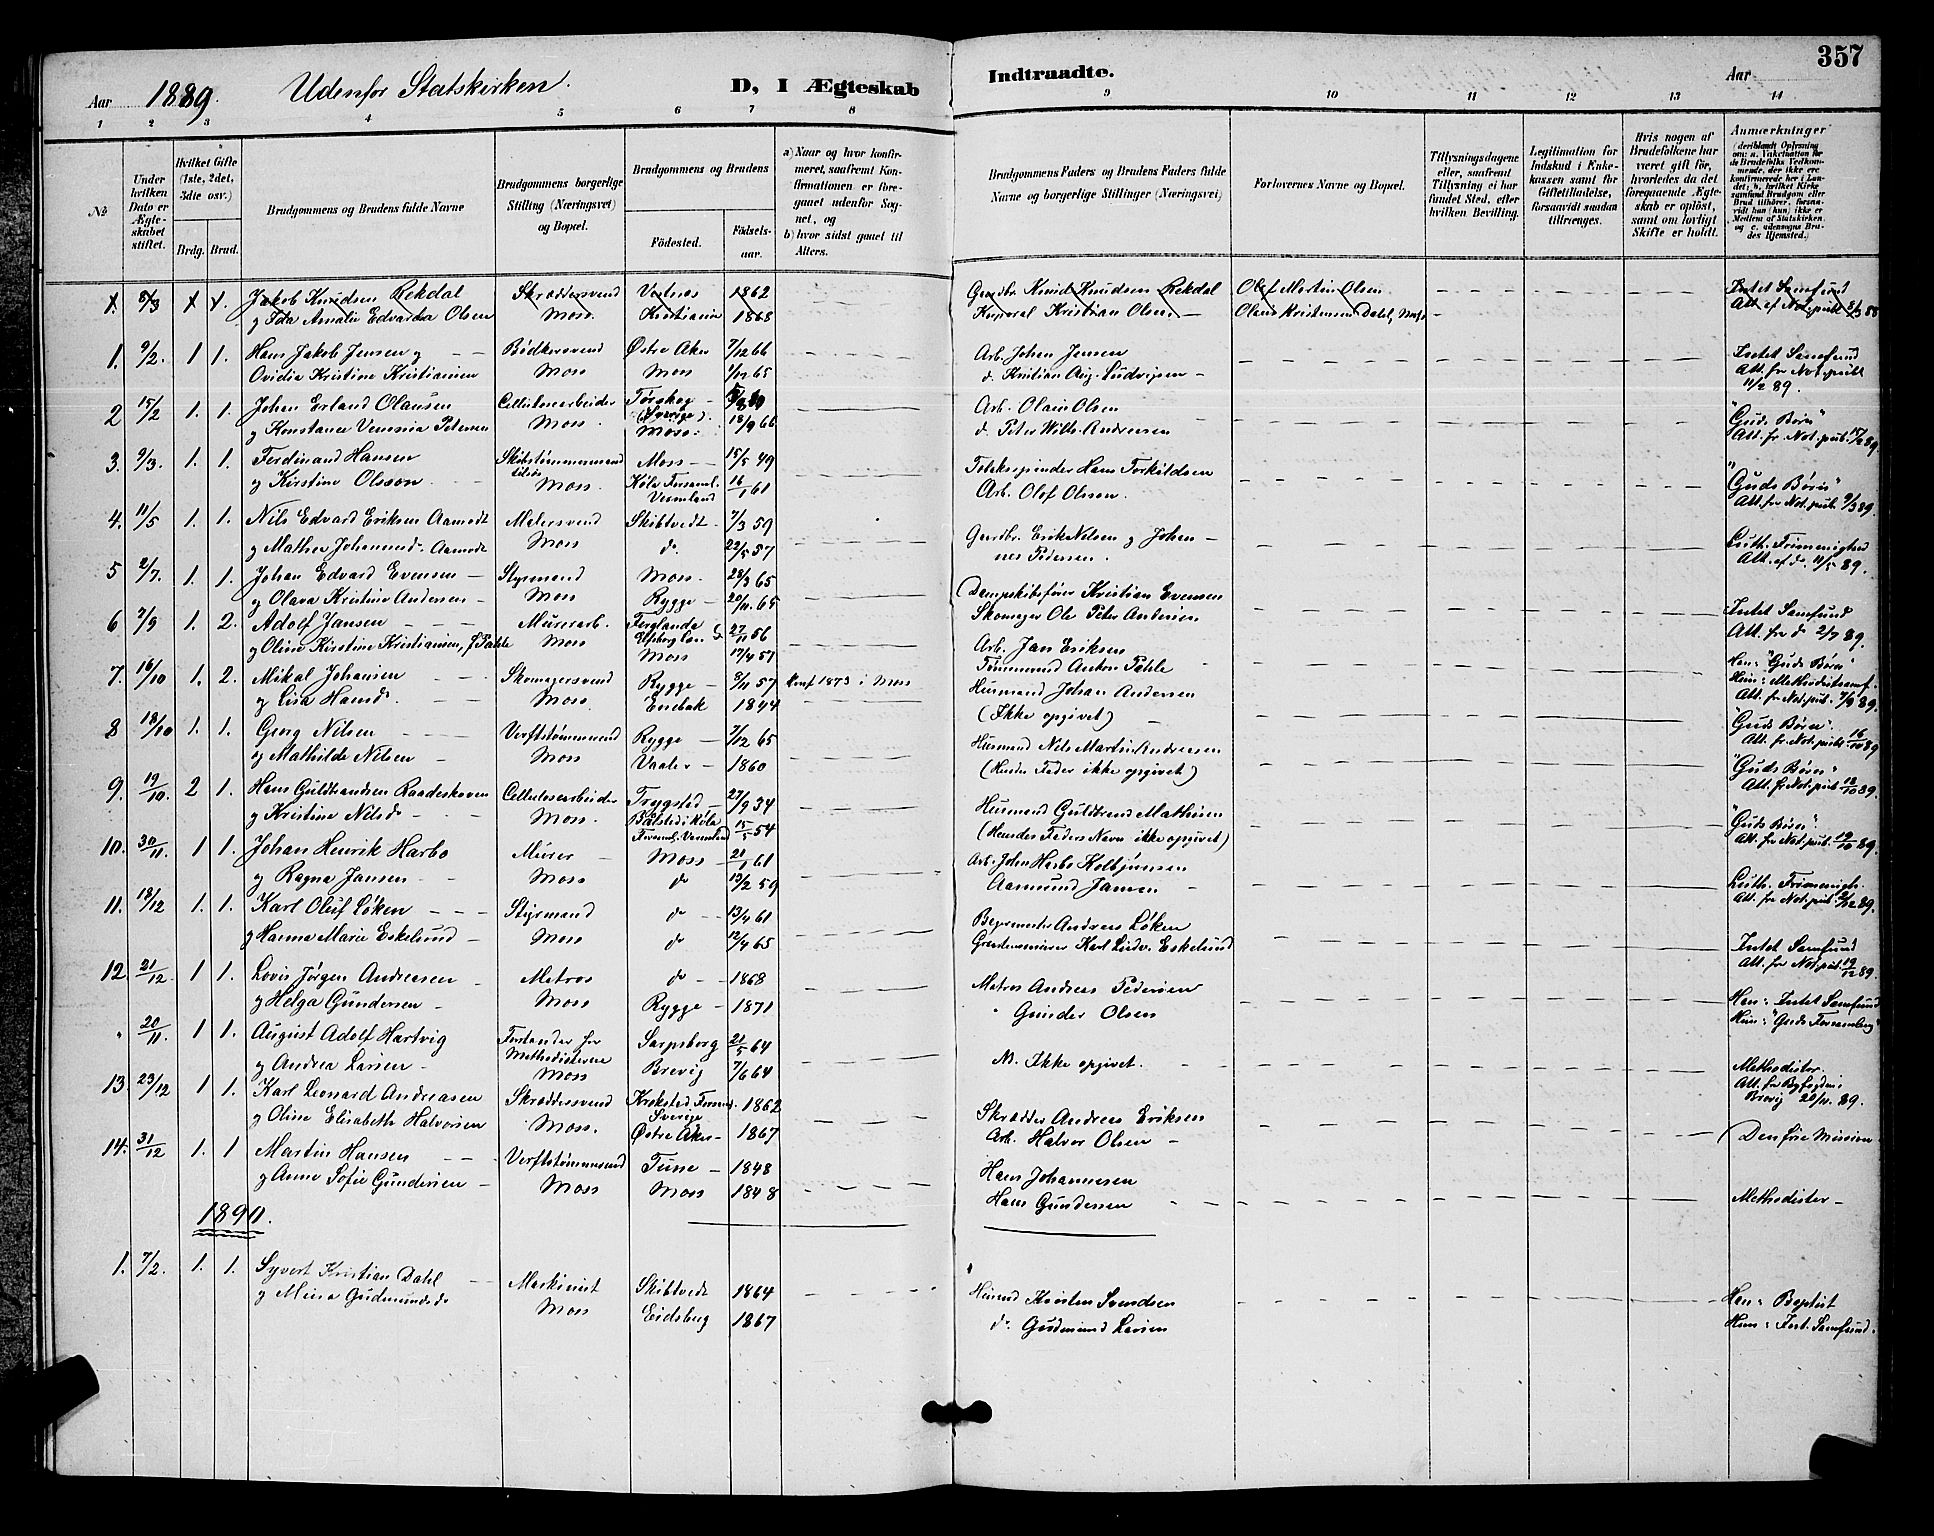 357
Aar 1889. Udenfor Statskirken. D, I Ægteskab Indtraadte. Aar
1 2 3 4 5 6 7 8 9 10 11 12 13 14
No
Under hvilken Dato er Ægteskabet stiftet.
Hvilket Gifte (1ste, 2det, 3dte osv.)
Brdg. Brud.
Brudgommens og Brudens fulde Navne
Brudgommens borgerlige Stilling (Næringsvei) og Bopæl.
Brudgommens og Brudens
Fødested. Fødselsaar.
a) Naar og hvor konfirmeret, saafremt Konfirmationen er foregaaet udenfor Sognet, og
b) hvor sidst gaaet til Alters.
Brudgommens Faders og Brudens Faders fulde Navne og borgerlige Stillinger (Næringsvei)
Forlovernes Navne og Bopæl.
Tillysningsdagene eller, saafremt Tillysning ei har fundet Sted, efter hvilken Bevilling.
Legitimation for Indskud i Enkekassen samt for Giftetilladelse, forsaavidt saadan tiltrænges.
Hvis nogen af Brudefolkene har været gift før, hvorledes da det foregaaende Ægteskab er opløst, samt om lovligt Skifte er holdt.
Anmærkninger (deriblandt Oplysning om: a. Vakcination for de Brudefolks Vedkommende, der ikke ere konfirmerede her i Landet; b. hvilket Kirkesamfund Brudgom eller Brud tilhører, forsaavidt han (hun) ikke er Medlem af Statskirken, og c. udensogns Brudes Hjemsted.)
1. 8/3 1 1. Jakob Knudsen Rekdal Skræddersvend Vestnes 1862 Gaardbr. Knud Knudsen Rekdal Olaf Martin Olsen Intet Samfund
og Ida Amalie Edvarda Olsen Moss Kristiania 1868 Korporal Kristian Olsen. Olaus Kristensen Dahl, Moss Att. af Not. publ. 8/3 88
1. 9/2. 1 1. Hans Jakob Jensen og Bødkersvend Østre Aker 7/12 66 Arb. Johan Jensen Intet Samfund
Ovidia Kristine Kristiansen Moss Moss 1/12 65 d. Kristian Aug. Ludvigsen Att. fr. Not. publ. 11/2 89.
2 15/2 1. 1. Johan Erland Olausen Cellulosearbeider Torskog (Sverige) Arb. Olaus Olsen "Guds Børn"
og Konstance Venersia Petersen Moss. Moss. 18/9 66 d. Peter Wilh. Andresen Att. fr. Not. pub. 15/2 89.
3. 9/3. 1. 1. Ferdinand Hansen Skibstømmermand Moss 15/5 49 Tobakspinder Hans Torkildsen "Guds Børn"
og Kirstine Olsson Moss. Køla Forsaml. Vermland 16/1 61 Arb. Olof Olsson. Att. fr. Not. pub. 9/3 89.
4. 11/5 1. 1. Nils Edvard Eriksen Aamodt Malersvend Skibtvedt 7/3 59 Gaardbr. Erik Nilsen og Johannes Pedersen. Luth. Frimenighed
og Mathea Johannesd. Aamodt Moss do. 22/5 57 Att. af do. 11/5 89.
5 2/7. 1. 1. Johan Edvard Evensen Styrmand Moss. 28/3 65 Dampskibsfører Kristian Evensen Intet Samfund
og Olava Kristine Andersen Moss Rygge 20/11 65 Skomager Ole Peter Andersen Att. fra do 2/7 89.
6 7/9 1. 2. Adolf Jansen Murerarb. Ferglanda Elfsborg Län 27/11 56 Arb. Jan Eriksen Han: "Guds Børn"
og Oline Kirstine Kristiansen, f. Pahle Moss Moss 17/4 51 Tømmermand Anton Pahle Hun: Methodistsamf. Att. fr. Not. pub. 7/9 89.
7. 16/10 1. 2. Mikal Johansen Skomagersvend Rygge 8/11 57 Konf 1873 i Moss Husmand Johan Andersen "Guds Børn".
og Lisa Hansd. Moss. Enebak 1844 (Ikke opgivet) Att. fr. Not. publ. 16/10 89
8 18/10 1. 1. Georg Nilsen Verftstømmermand Rygge 7/12 65 Husmand Nils Martin Andresen "Guds Børn"
og Mathilde Nilsen Moss Vaaler 1860 (Hendes Fader ikke opgivet) Att. fr. Not. pub. 18/10 89.
9. 19/10. 2 1. Hans Guldbrandsen Raadeskoven Cellulosearbeider Trygstad 27/9 34 Husmand Guldbrand Mathisen "Guds Børn"
og Kristine Nilsd. Moss. Bålsted i Køla Forsaml. Vermland 15/5 54 (Hendes Faders Navn ikke opgivet) Att. fr. Not. pub. 19/10 89.
10. 30/11. 1 1. Johan Henrik Harbo Murer Moss 21/1 61 Arb. John Harbo Kolbjønsen Luth. Frimenigh.
og Ragna Jansen Moss do 13/2 59 Aamund Jansen Att. fr. Not. pub. 2/12 89.
11. 18/12 1. 1. Karl Oluf Løken Styrmand do 13/4 61 Bagermester Andreas Løken Intet Samfund
og Hanna Marie Eskelund Moss do 12/4 65 Karl Ludv. Eskelund Att. fr. Not. pub. 19/12 89.
12. 21/12 1 1. Lovis Jørgen Andreasen Matros do 1868 Matros Andreas Pedersen Han: Intet Samfund
og Helga Gundersen Moss Rygge 1871 " Gunder Olsen Hun: "Guds Forsamling"
" 20/11. 1 1. August Adolf Hartvig Forstander for Methodisterne Sarpsborg 21/5 64 NB. Ikke opgivet. Methodister.
og Andrea Larsen Moss Brevig 7/6 64 Att. fra Byfogden i Brevig 20/11. 89.
13. 23/12 1 1. Karl Leonard Andreasen Skræddersvend Krokstad Forsaml. Sverige 1862 Skrædder Andreas Eriksen Den frie Mission
og Oline Elisabeth Halvorsen Moss. Østre Aker 1867 Arb. Halvor Olsen
14. 31/12 1. 1 Martin Hansen Verftstømmermand Tune 1848 Hans Johannesen Methodister
og Anne Sofie Gundersen Moss Moss 1848 Hans Gundersen
1890.
1. 7/2. 1. 1. Syvert Kristian Dahl Maskinist Skibtvedt 1864 Husmd Karsten Svendsen Han: Baptist
og Mina Gudmundsd. Moss Eidsberg 1867 do. Gudmund Larsen Hun: Int. Samfund.